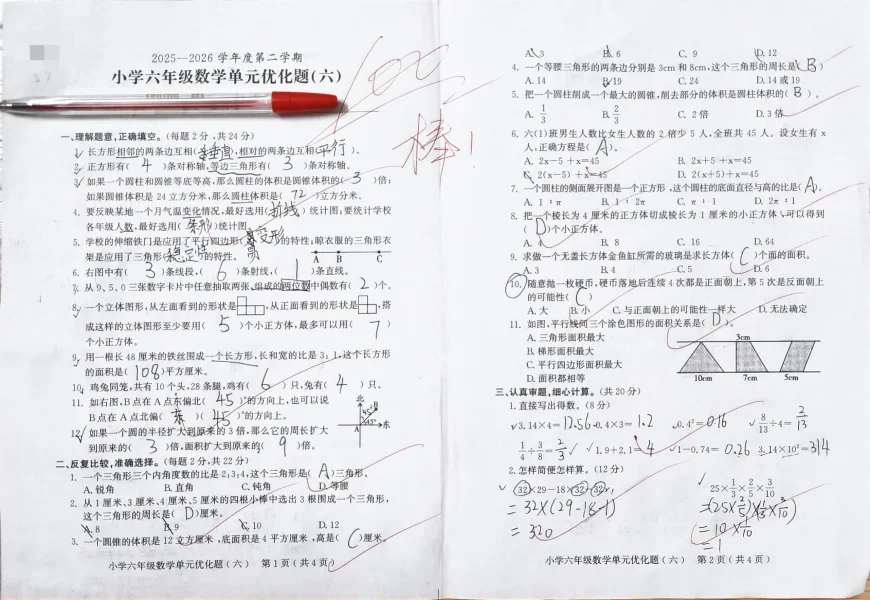 2025—2026 学年度第二学期
小学六年级数学单元优化题(六)
100
棒!
一、理解题意,正确填空。(每题 2 分,共 24 分)
1. 长方形相邻的两条边互相(垂直),相对的两条边互相(平行)。
2. 正方形有( 4 )条对称轴,等边三角形有( 3 )条对称轴。
3. 如果一个圆柱和圆锥等底等高,那么圆柱的体积是圆锥体积的( 3 )倍;
如果圆锥体积是 24 立方分米,那么圆柱体积是( 72 )立方分米。
4. 要反映某地一个月气温变化情况,最好选用(折线)统计图;要统计学校
各年级人数,最好选用(条形)统计图。
5. 学校的伸缩铁门是应用了平行四边形(易变形)的特性;晾衣服的三角形衣
架是应用了三角形(稳定性)的特性。
A B C
6. 右图中有( 3 )条线段,( 6 )条射线,( 1 )条直线。
7. 从 9、5、0 三张数字卡片中任意抽取两张,组成的两位数中偶数有( 2 )个。
8. 一个立体图形,从左面看到的形状是,从正面看到的形状是,搭
成这样的立体图形至少要用( 5 )个小正方体,最多可以用( 7 )
个小正方体。
9. 用一根长 48 厘米的铁丝围成一个长方形,长和宽的比是 3:1,这个长方形
的面积是( 108 )平方厘米。
10. 鸡兔同笼,共有 10 个头,28 条腿,鸡有( 6 )只,兔有( 4 )只。
11. 如右图,B 点在 A 点东偏北( 45 )°的方向上,也可以说
B 点在 A 点北偏( 东 )( 45 )°的方向上。
北 B 45° 45° A 东
12. 如果一个圆的半径扩大到原来的 3 倍,那么它的周长扩大
到原来的( 3 )倍,面积扩大到原来的( 9 )倍。
二、反复比较,准确选择。(每题 2 分,共 22 分)
1. 一个三角形三个内角度数的比是 2:3:4,这个三角形是( A )三角形。
A. 锐角 B. 直角 C. 钝角 D. 等腰
2. 从 1 厘米、3 厘米、4 厘米、5 厘米的四根小棒中选出 3 根围成一个三角形,
这个三角形的周长是( D )厘米。
A. 8 B. 9 C. 10 D. 12
3. 一个圆锥的体积是 12 立方厘米,底面积是 4 平方厘米,高是( C )厘米。
小学六年级数学单元优化题(六) 第 1 页(共 4 页)
A. 3 B. 6 C. 9 D. 12
4. 一个等腰三角形的两条边分别是 3cm 和 8cm,这个三角形的周长是( B )
A. 14 B. 19 C. 24 D. 14 或 19
5. 把一个圆柱削成一个最大的圆锥,削去部分的体积是圆柱体积的( B )。
A. 1/3 B. 2/3 C. 2 倍 D. 3 倍
6. 六(1)班男生人数比女生人数的 2 倍少 5 人,全班共 45 人。设女生有 x
人,正确方程是( A )。
A. 2x-5+x=45 B. 2x+5+x=45
C. 2(x-5)+x=45 D. 2(x+5)+x=45
7. 一个圆柱的侧面展开图是一个正方形,这个圆柱的底面直径与高的比是( A )。
A. 1:π B. 1:2π C. π:1 D. 2π:1
8. 把一个棱长为 4 厘米的正方体切成棱长为 1 厘米的小正方体,可以得到
( D )个小正方体。
A. 4 B. 8 C. 16 D. 64
9. 求做一个无盖长方体金鱼缸所需的玻璃是求长方体( C )个面的面积。
A. 3 B. 4 C. 5 D. 6
10. 随意抛一枚硬币,硬币落地后连续 4 次都是正面朝上,第 5 次是反面朝上
的可能性( C )
A. 大 B. 小 C. 与正面朝上的可能性一样大 D. 无法确定
11. 如图,平行线间三个涂色图形的面积关系是( D )。
A. 三角形面积最大
B. 梯形面积最大
C. 平行四边形面积最大
D. 面积都相等
3cm
10cm 7cm 5cm
三、认真审题,细心计算。(共 20 分)
1. 直接写出得数。(8 分)
3.14×4=12.56 0.4×3=1.2 0.4²=0.16 8/13÷4=2/13
1/4÷3/8=2/3 1.9+2.1=4 1-0.74=0.26 3.14×10²=314
2. 怎样简便怎样算。(12 分)
32×29-18×32-32 25×1/3×2/5×3/10
=32×(29-18-1) =(25×2/5)×(1/3×3/10)
=320 =10×1/10
=1
小学六年级数学单元优化题(六) 第 2 页(共 4 页)